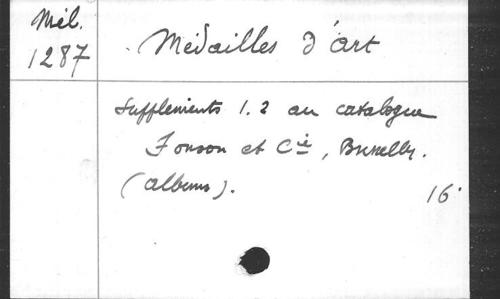 Mél.
1287
Médailles d'art
Suppléments 1.2 au catalogue
Fonson et Cie, Bruxelles.
(albums).
16°